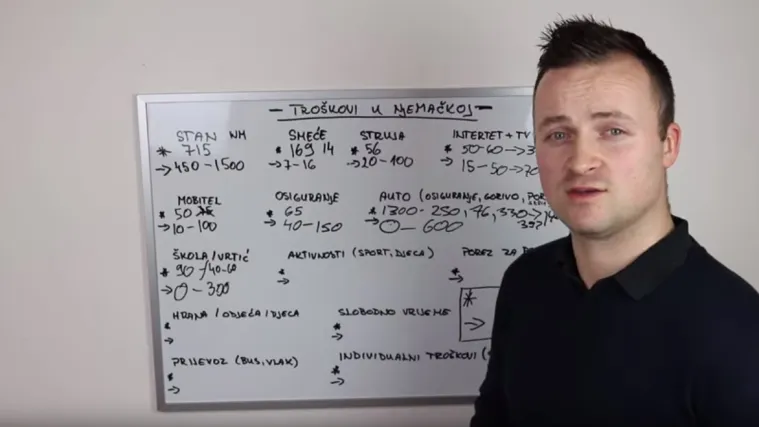 TROŠKOVI U NJEMAČKOJ
STAN NM
* 715
→ 450-1500
SMEĆE
* 169 14
→ 7-16
STRUJA
* 56
→ 20-100
INTERTET + TV
* 50-60 → 3
→ 15-50 → 70
MOBITEL
* 50
→ 10-100
OSIGURANJE
* 65
→ 40-150
AUTO (OSIGURANJE, GORIVO,
* 1300-250, 46, 330 →
→ 0-600
ŠKOLA / VRTIĆ
* 90 / 40-60
→ 0-300
AKTIVNOSTI (SPORT, DJECA)
* 
→
POREZ ZA
*
→
HRANA / ODJEĆA / DJECA
*
→
SLOBODNO VRIJEME
*
→
*
→
PRIJEVOZ (BUS, VLAK)
*
→
INDIVIDUALNI TROŠKOVI (
*
→